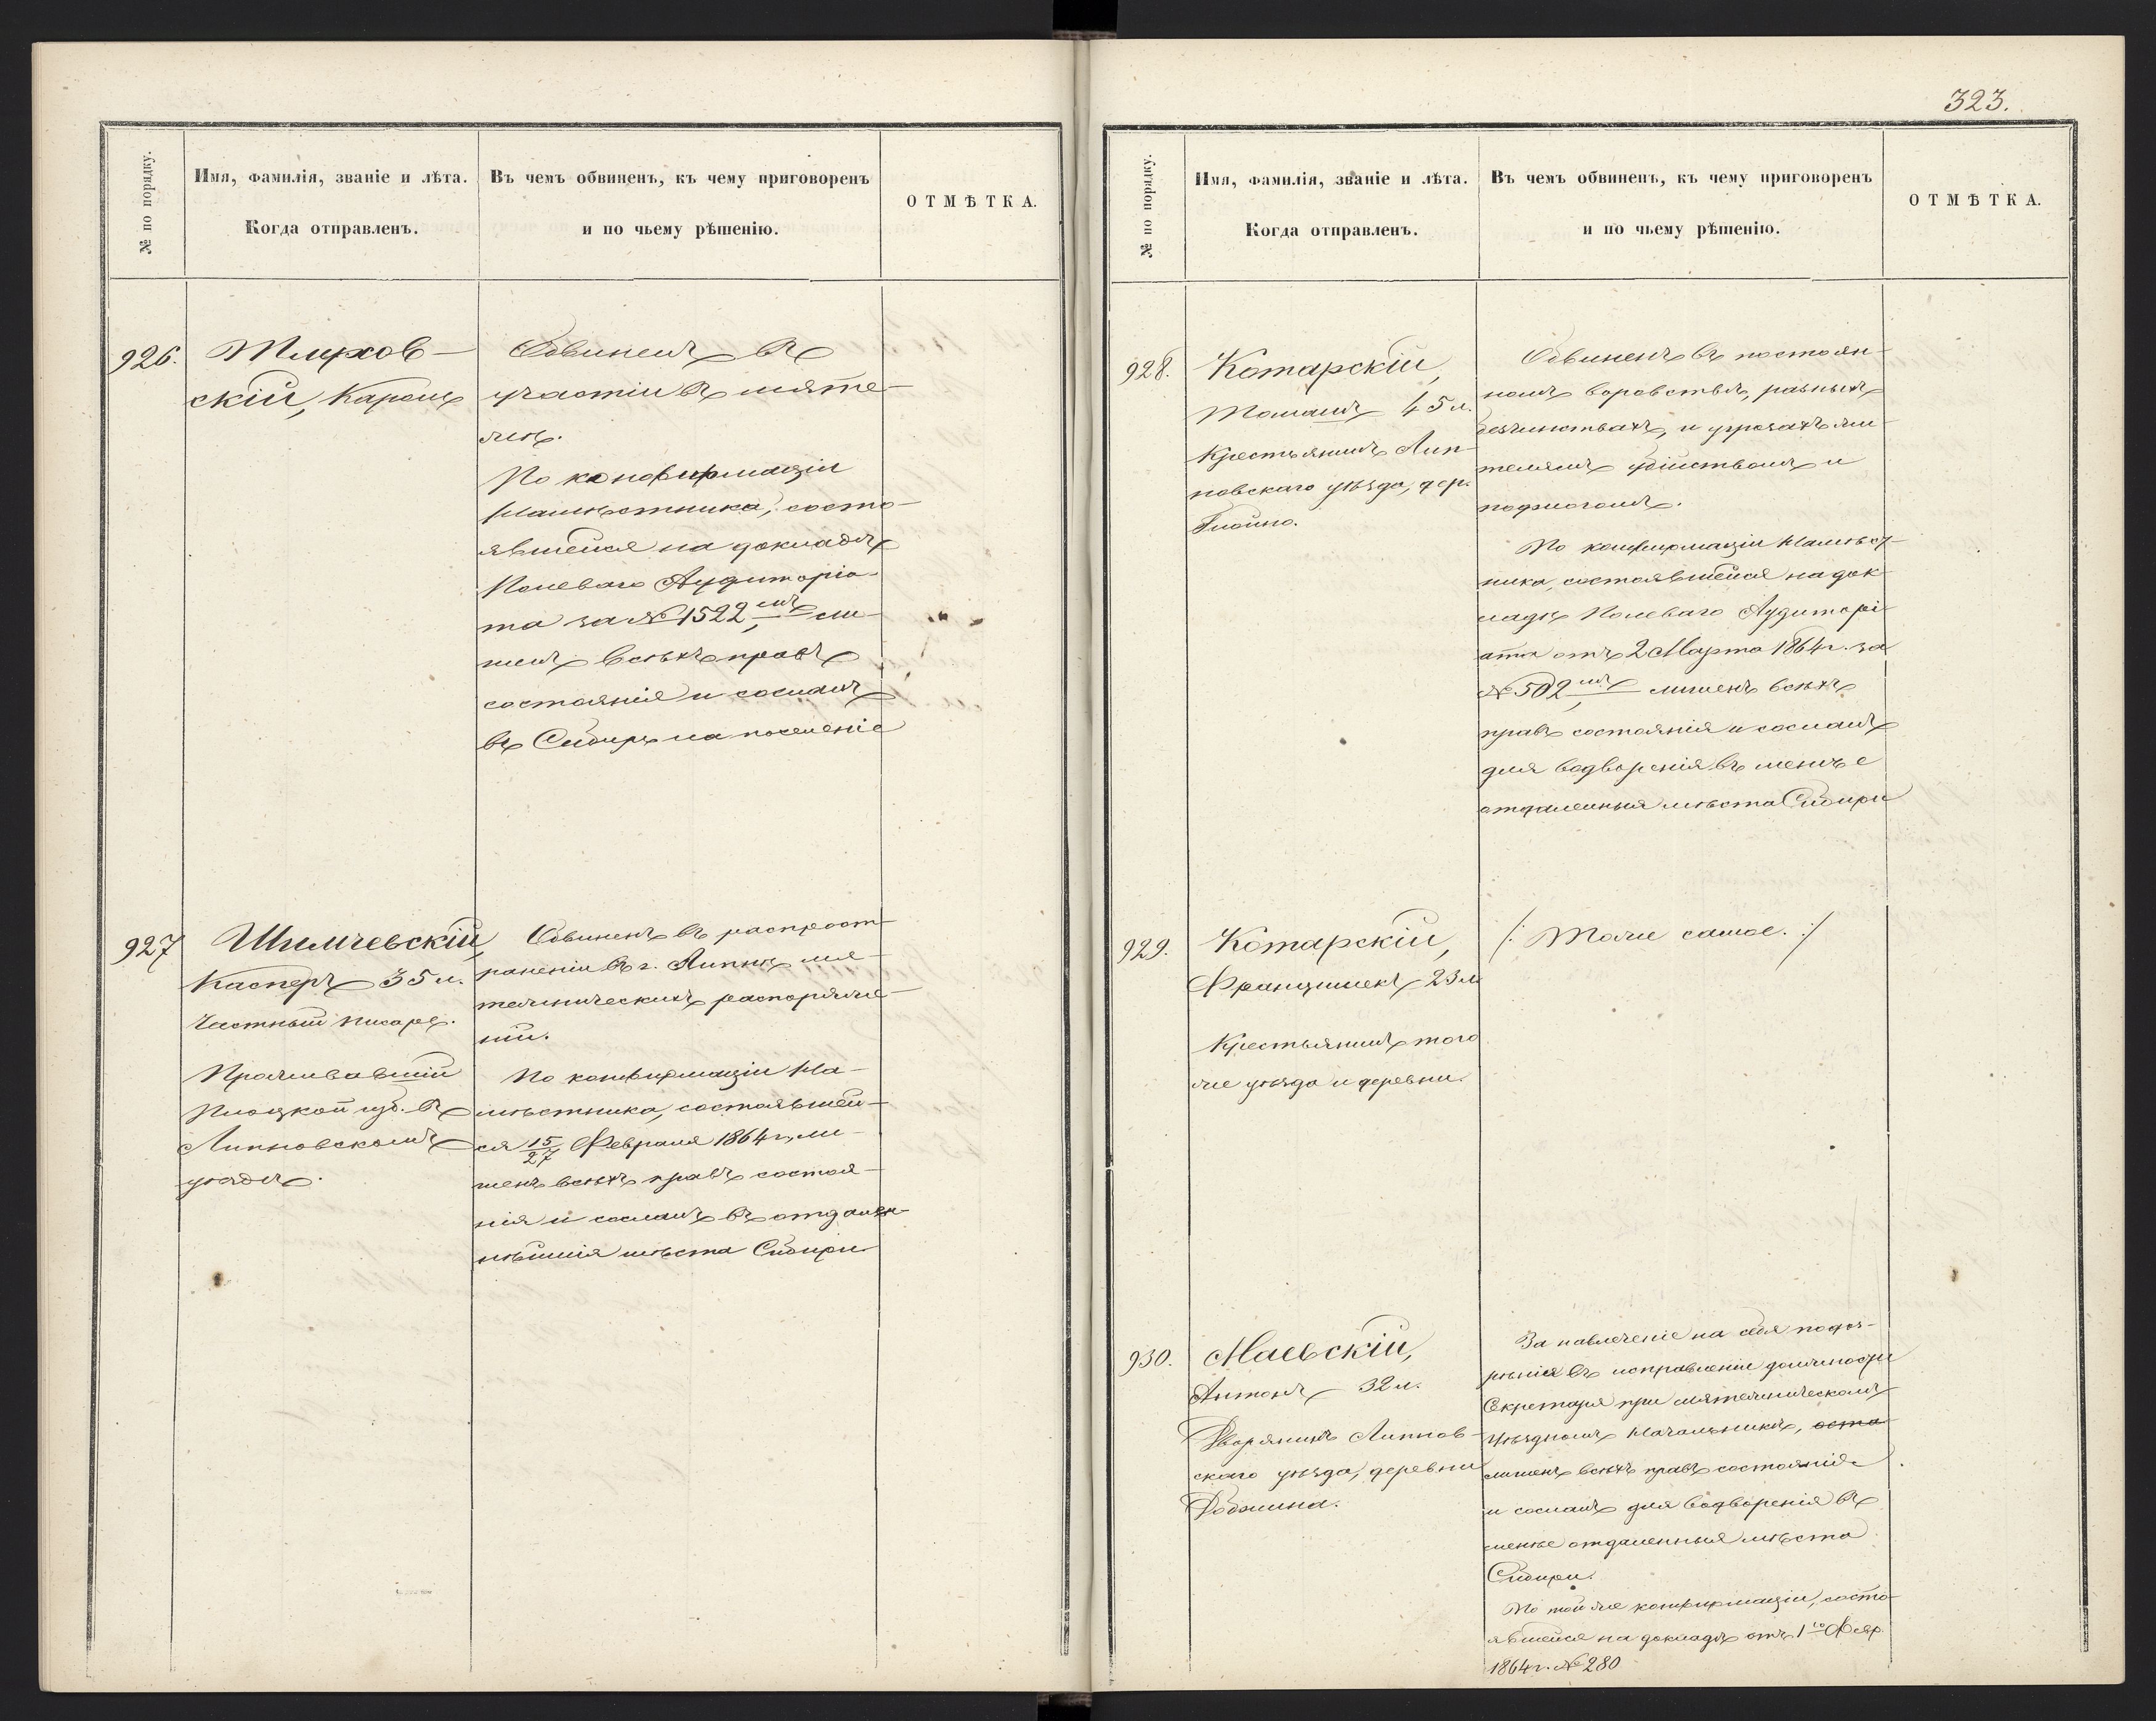 № по порядку.
Имя, фамилія, званіе и лѣта.
Когда отправленъ.
Въ чемъ обвиненъ, къ чему приговоренъ
и по чьему рѣшенію.
ОТМѢТКА.
926.
скій, Кароль
Обвиненъ въ
участіи въ мяте-
жѣ.
По конфирмаціи
Намѣстника, состо-
явшейся на докладѣ
Полеваго Аудиторіа-
та за № 1522, ли-
шенъ всѣхъ правъ
состоянія и сосланъ
въ Сибирь на поселеніе
927
Шимчевскій,
Касперъ 35 л.
Частный писарь.
Проживавшій
Плоцкой губ. въ
Липновскомъ
уѣздѣ.
Обвиненъ въ распрост-
раненіи въ г. Липнѣ мя-
тежническихъ распоряже-
ній.
По конфирмаціи На-
мѣстника, состоявшей-
ся 15/27 Февраля 1864 г., ли-
шенъ всѣхъ правъ состоя-
нія и сосланъ въ отдален-
нѣйшія мѣста Сибири
323.
№ по порядку.
Имя, фамилія, званіе и лѣта.
Когда отправленъ.
Въ чемъ обвиненъ, къ чему приговоренъ
и по чьему рѣшенію.
ОТМѢТКА.
928.
Котарскій,
Томашъ 45 л.
Крестьянинъ Лип-
новскаго уѣзда, дер.
Обвиненъ въ постоян-
номъ воровствѣ, разныхъ
безчинствахъ, и угрозахъ жи-
телямъ убійствомъ и
поджогомъ.
По конфирмаціи Намѣст-
ника, состоявшейся на док-
ладѣ Полеваго Аудиторі-
ата отъ 2 Марта 1864 г. за
№ 502, лишенъ всѣхъ
правъ состоянія и сосланъ
для водворенія въ менѣе
отдаленныя мѣста Сибири
929.
Котарскій,
Францишекъ 23 л.
Крестьянинъ того
же уѣзда и деревни.
/: Тоже самое. :/
930.
Маевскій,
Антонъ 32 л.
Дворянинъ Липнов-
скаго уѣзда, деревни
За навлеченіе на себя подоз-
рѣнія въ исправленіи должности
Секретаря при мятежническомъ
Уѣздномъ Начальникѣ, оста
лишенъ всѣхъ правъ состоянія
и сосланъ для водворенія въ
менѣе отдаленныя мѣста
Сибири.
По той же конфирмаціи, состо-
явшейся на докладѣ отъ 1го Февр.
1864 г. № 280